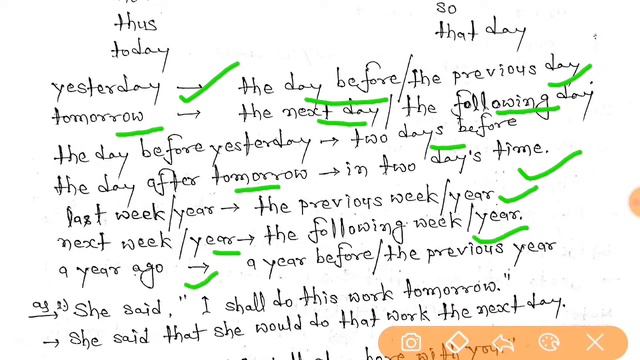 thus so
today that day
yesterday → the day before/the previous day
tomorrow → the next day/ the following day
the day before yesterday → two days before
the day after tomorrow → in two day's time.
last week/year → the previous week/year
next week/year → the following week/year.
a year ago → a year before/the previous year
She said, "I shall do this work tomorrow."
→ She said that she would do that work the next day.
with you."